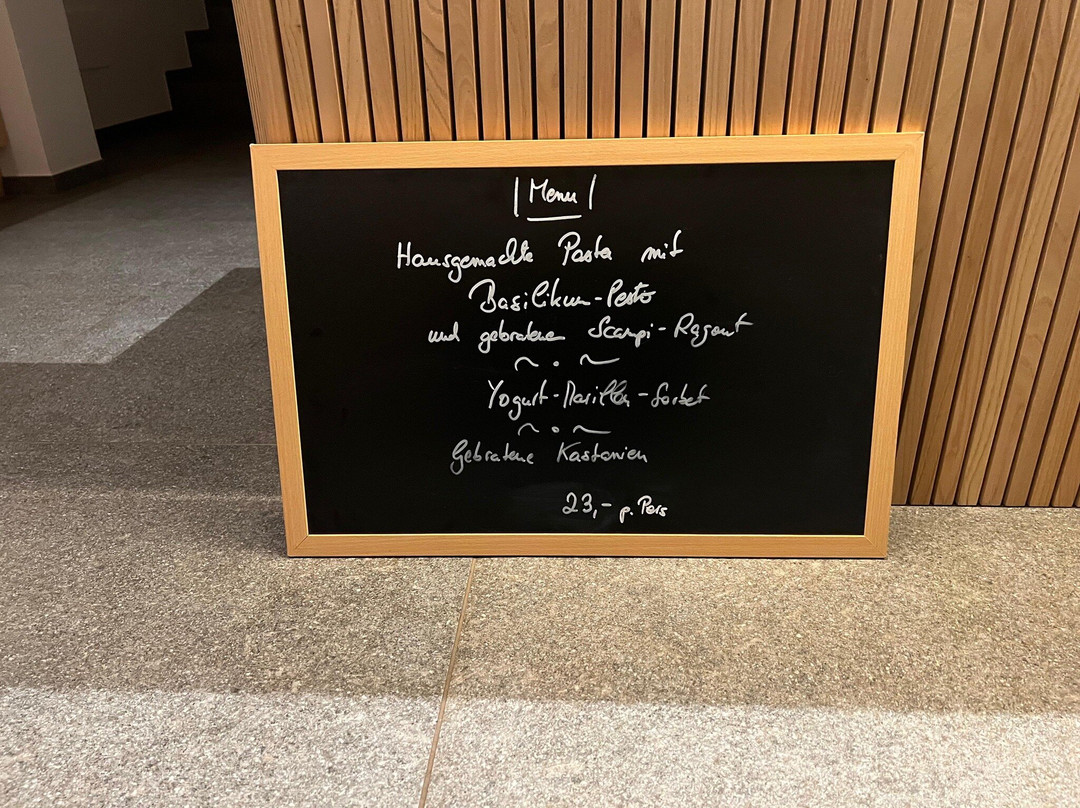 | Menu |
Hausgemachte Pasta mit
Basilikum-Pesto
und gebratene Scampi-Ragout
~ . ~
Yogurt-Marillen-Sorbet
~ o ~
Gebratene Kastanien
23,- p. Pers